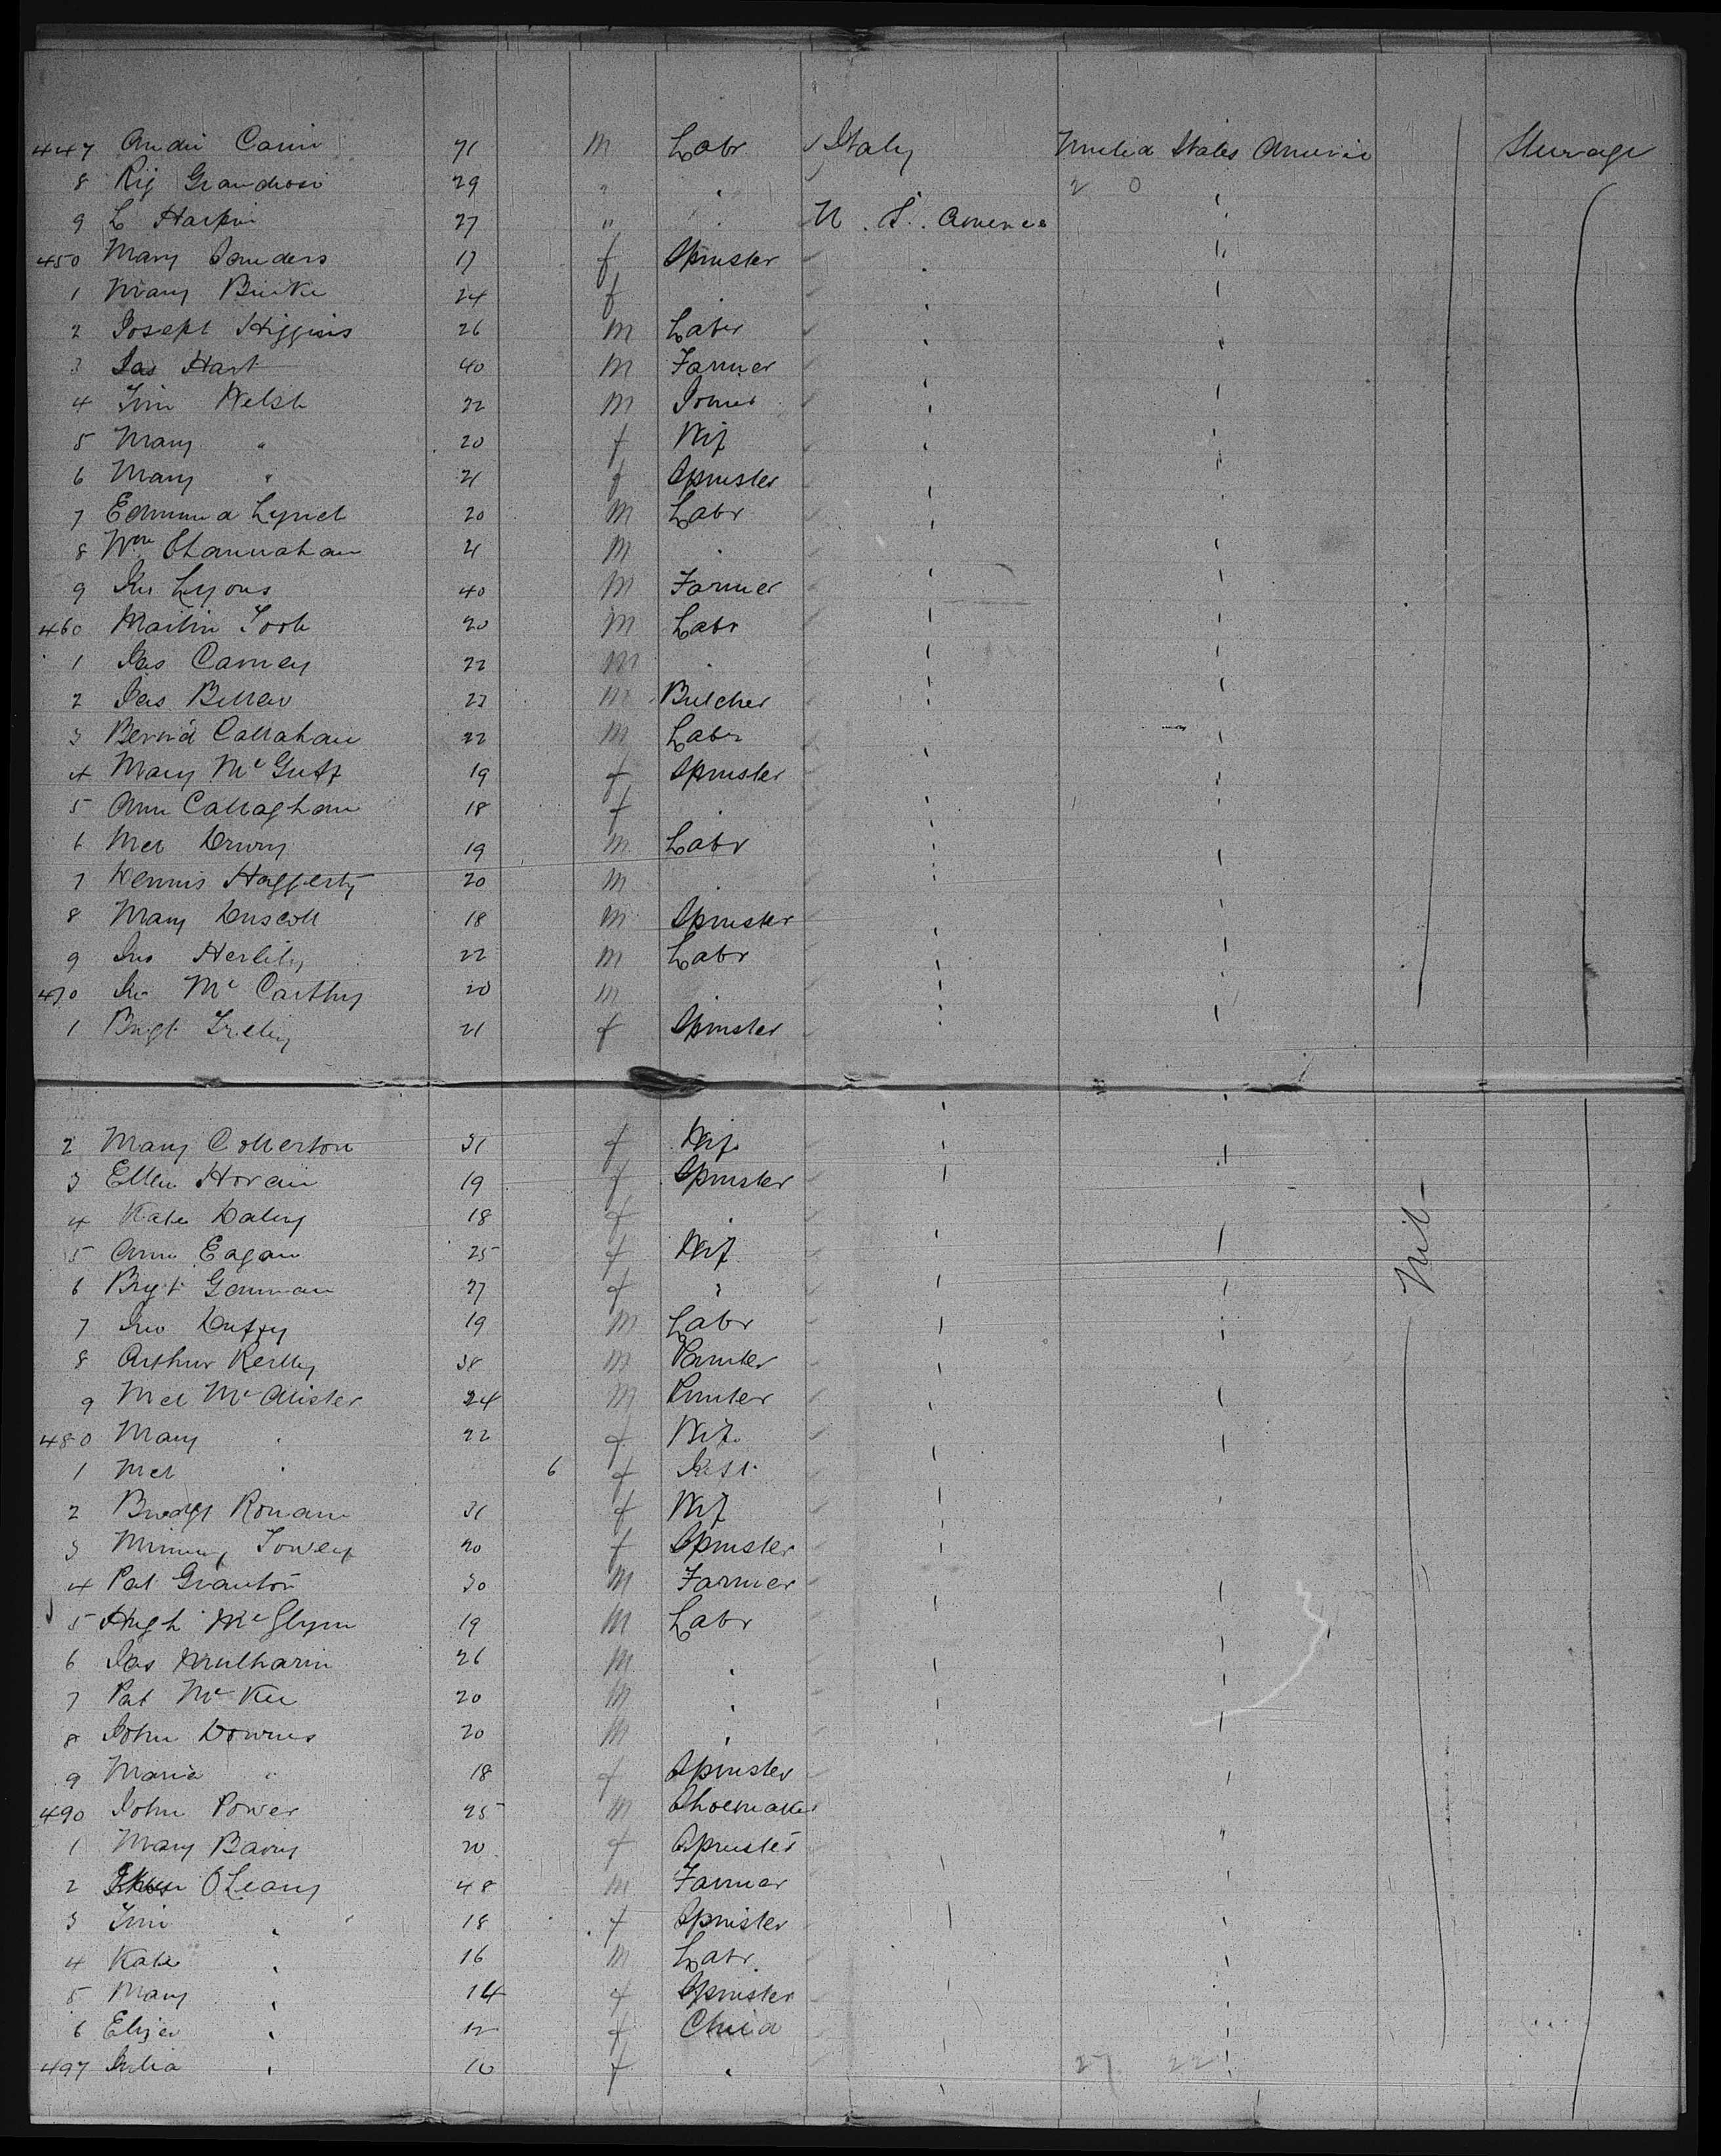 447 Andu Carin 21 M Labr Italy United States America Steerage
8 Rig Grandrosi 29 " " 2 0
9 L Harpin 27 " " U. S. America
450 Mary Sanders 17 f Spinster
1 Mary Burke 24 f "
2 Joseph Higgins 26 M Labr
3 Jas Hart 40 M Farmer
4 Tim Welsh 22 M Joiner
5 Mary " 20 f Wif
6 Mary " 21 f Spinster
7 Edmund Lynch 20 M Labr
8 Wm Shannahan 21 M "
9 Jno Lyons 40 M Farmer
460 Martin Toole 20 M Labr
1 Jas Carney 22 M "
2 Jas Bellew 23 M Butcher
3 Bernd Callahan 22 M Labr
4 Mary McGuff 19 f Spinster
5 Ann Callaghan 18 f "
6 Mcl Drury 19 M Labr
7 Dennis Haggerty 20 M "
8 Mary Driscoll 18 M Spinster
9 Jno Herlihy 22 M Labr
470 Jno McCarthy 20 M "
1 Brigt Trelly 21 f Spinster
2 Mary Collerton 31 f Wif
3 Ellen Horan 19 f Spinster
4 Kate Daley 18 f "
5 Ann Eagan 25 f Wif
6 Brgt Gannan 27 f " Nil
7 Jno Duffy 19 M Labr
8 Arthur Reilly 38 M Painter
9 Mcl McAlister 24 M Printer
480 Mary " 22 f Wif
1 Mcl " 6 f Inft
2 Bridgt Ronan 31 f Wif
3 Minny Towey 20 f Spinster
4 Pat Granton 30 M Farmer
5 Hugh McGlynn 19 M Labr
6 Jas Mulharin 26 M "
7 Pat McKee 20 M "
8 John Downes 20 M "
9 Maria " 18 f Spinster
490 John Power 25 M Shoemaker
1 Mary Barry 20 f Spinster
2 OLeary 48 M Farmer
3 Tim " 18 f Spinster
4 Kate " 16 M Labr
5 Mary " 14 f Spinster
6 Eliza " 12 f Child
497 Julia " 10 f " 27 22